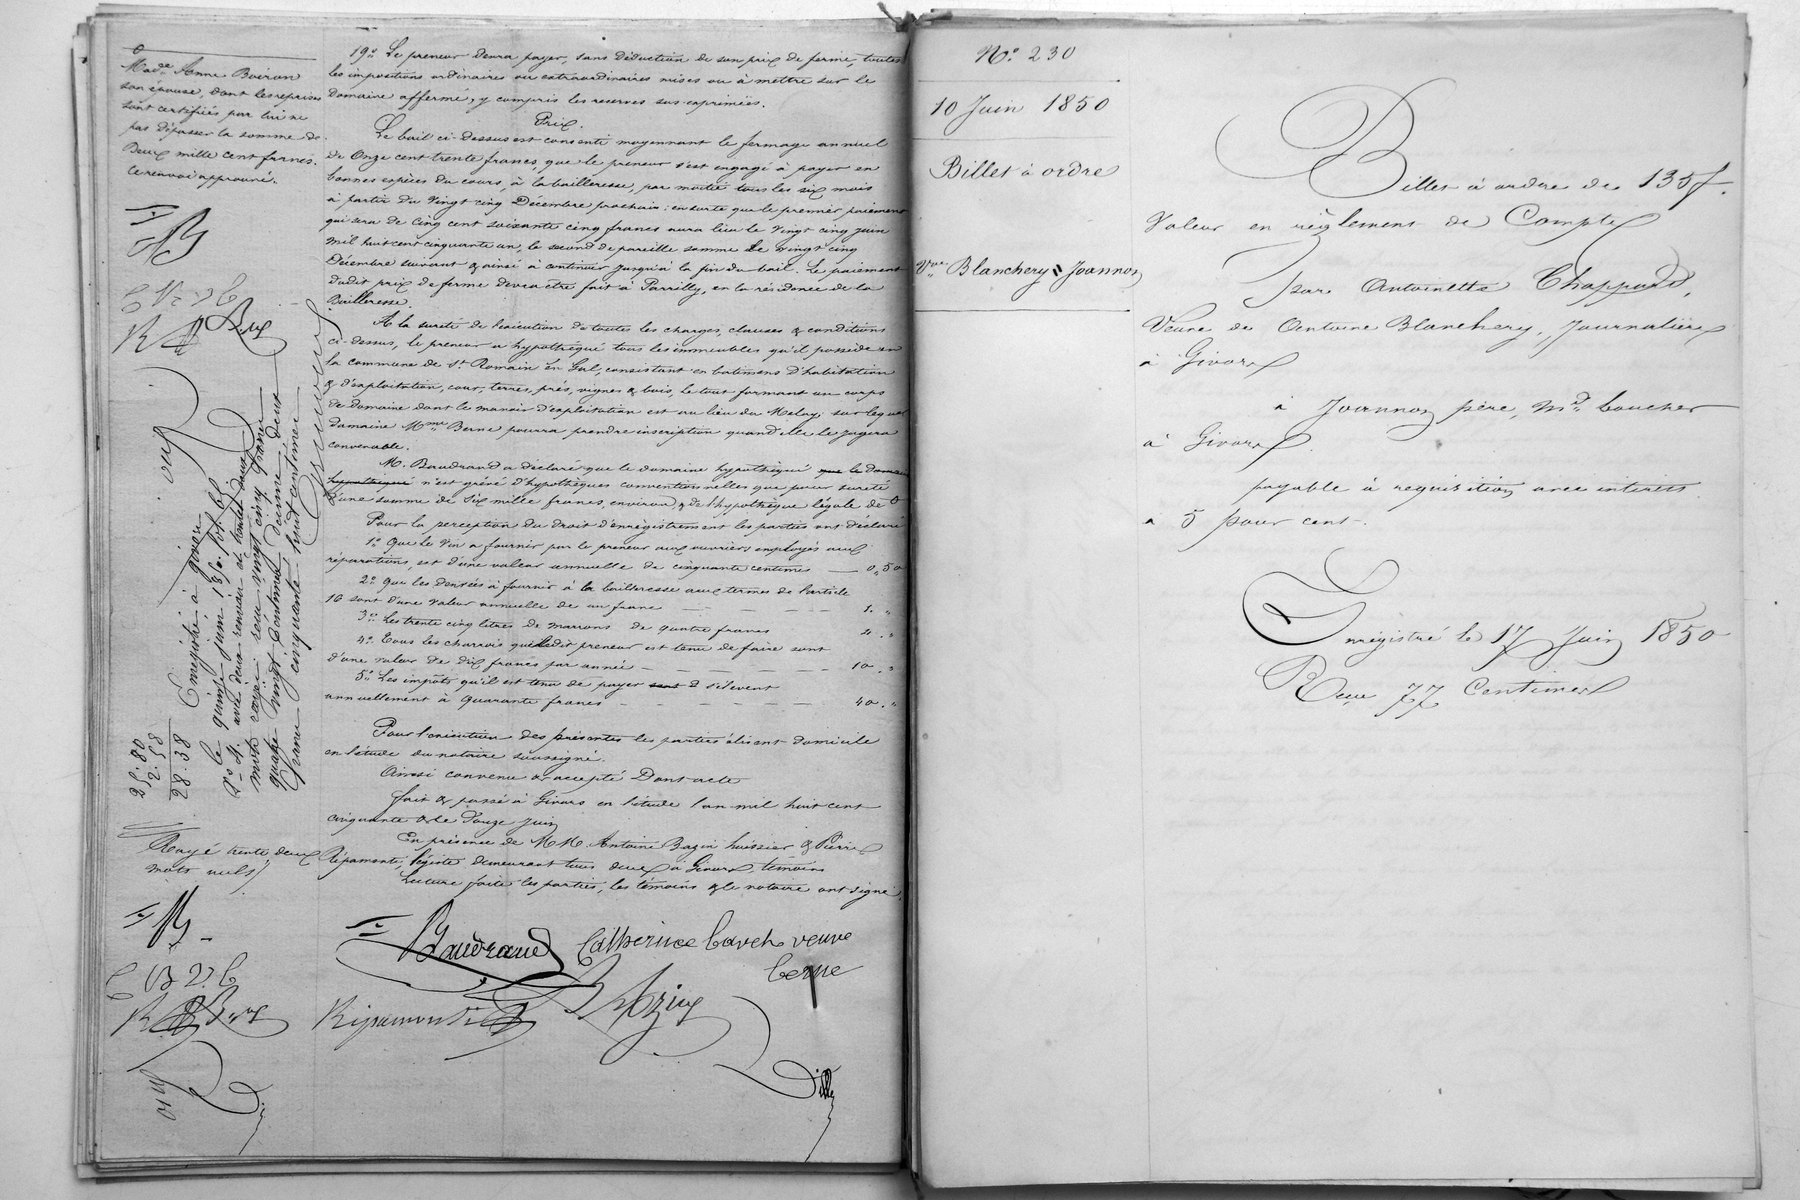 19o. Le preneur devra payer, sans déduction de son prix de ferme, toutes
les impositions ordinaires ou extraordinaires mises ou à mettre sur le
Domaine affermé, y compris les reserves sus-exprimées.
Prix.
Le bail ci-dessus est consenti moyennant le fermage annuel
de Onze cent trente francs, que le preneur s'est engagé à payer en
bonnes espèces du cours, à la bailleresse, par moitié tous les six mois
à partir du vingt cinq Décembre prochain; en sorte que le premier paiement
qui sera de cinq cent soixante cinq francs aura lieu le vingt cinq juin
mil huit cent cinquante un, le second de pareille somme le vingt cinq
Décembre suivant & ainsi à continuer jusqu'à la fin du bail. Le paiement
dudit prix de ferme devra être fait à Parrilly, en la résidence de la
Bailleresse.
A la sureté de l'exécution de toutes les charges, clauses & conditions
ci-dessus, le preneur a hypothéqué tous les immeubles qu'il possède en
la commune de St. Romain en Gal, consistant en batimens d'habitation
& d'exploitation, cour, terres, prés, vignes & bois, le tout formant un corps
de domaine dont le manoir d'exploitation est au lieu du Melay; sur lequel
domaine Mme Berne pourra prendre inscription quand elle le jugera
convenable.
M. Baudrand a déclaré que le domaine hypothéqué que le domaine
hypothéqué n'est grévé d'hypothèques conventionnelles que pour sureté
d'une somme de Six mille francs, environ, & de l'hypothèque légale de O
Pour la perception du droit d'enregistrement les parties ont déclaré
1o. Que le vin à fournir par le preneur aux ouvriers employés aux
réparations, est d'une valeur annuelle de cinquante centimes — 0,50
2o. Que les denrées à fournir à la bailleresse aux termes de l'article
16 sont d'une valeur annuelle de un franc — — — — 1. "
3o. Les trente cinq litres de marrons de quatre francs 4. "
4o. Tous les charrois que ledit preneur est tenu de faire sont
d'une valeur de dix francs par année — — — — 10. "
5o. Les impôts qu'il est tenu de payer sont s'élevent
annuellement à quarante francs — — — — 40. "
Pour l'exécution des présentes les parties élisent domicile
en l'étude du notaire soussigné.
Ainsi convenu & accepté Dont acte
fait & passé à Givors en l'étude l'an mil huit cent
cinquante & le Douze juin
En présence de MM. Antoine Bazin huissier & Pierre
Ripamonti, légiste demeurant tous deux à Givors, témoins
Lecture faite les parties, les témoins & le notaire ont signé.
Baudrand Catherine Cavet veuve
berne
Ripamonti Bazin
O
Made. Anne Boiron
son épouse, dont les reprises
sont certifiées par lui ne
pas dépasser la somme de
Deux mille cent francs.
Ce renvoi approuvé.
Enregistré à Givors
le quinze juin 1850
avec deux renvois et trente deux
mots rayés reçu vingt cinq francs
quatre vingt centimes decime deux
francs cinquante huit centimes
25.80
2.58
28.38
Rayé trente deux
mots nuls
No. 230
10 Juin 1850
Billet à ordre
Vve. Blanchery à Joannon
Billet à ordre de 135f.
Valeur en règlement de Compte
par Antoinette Chappard,
Veuve de Antoine Blanchery, Journalière
à Givors
à Joannon père, Md. boucher
à Givors
payable à requisition avec intérêts
à 5 pour cent.
Enregistré le 17 Juin 1850
Reçu 77 Centimes